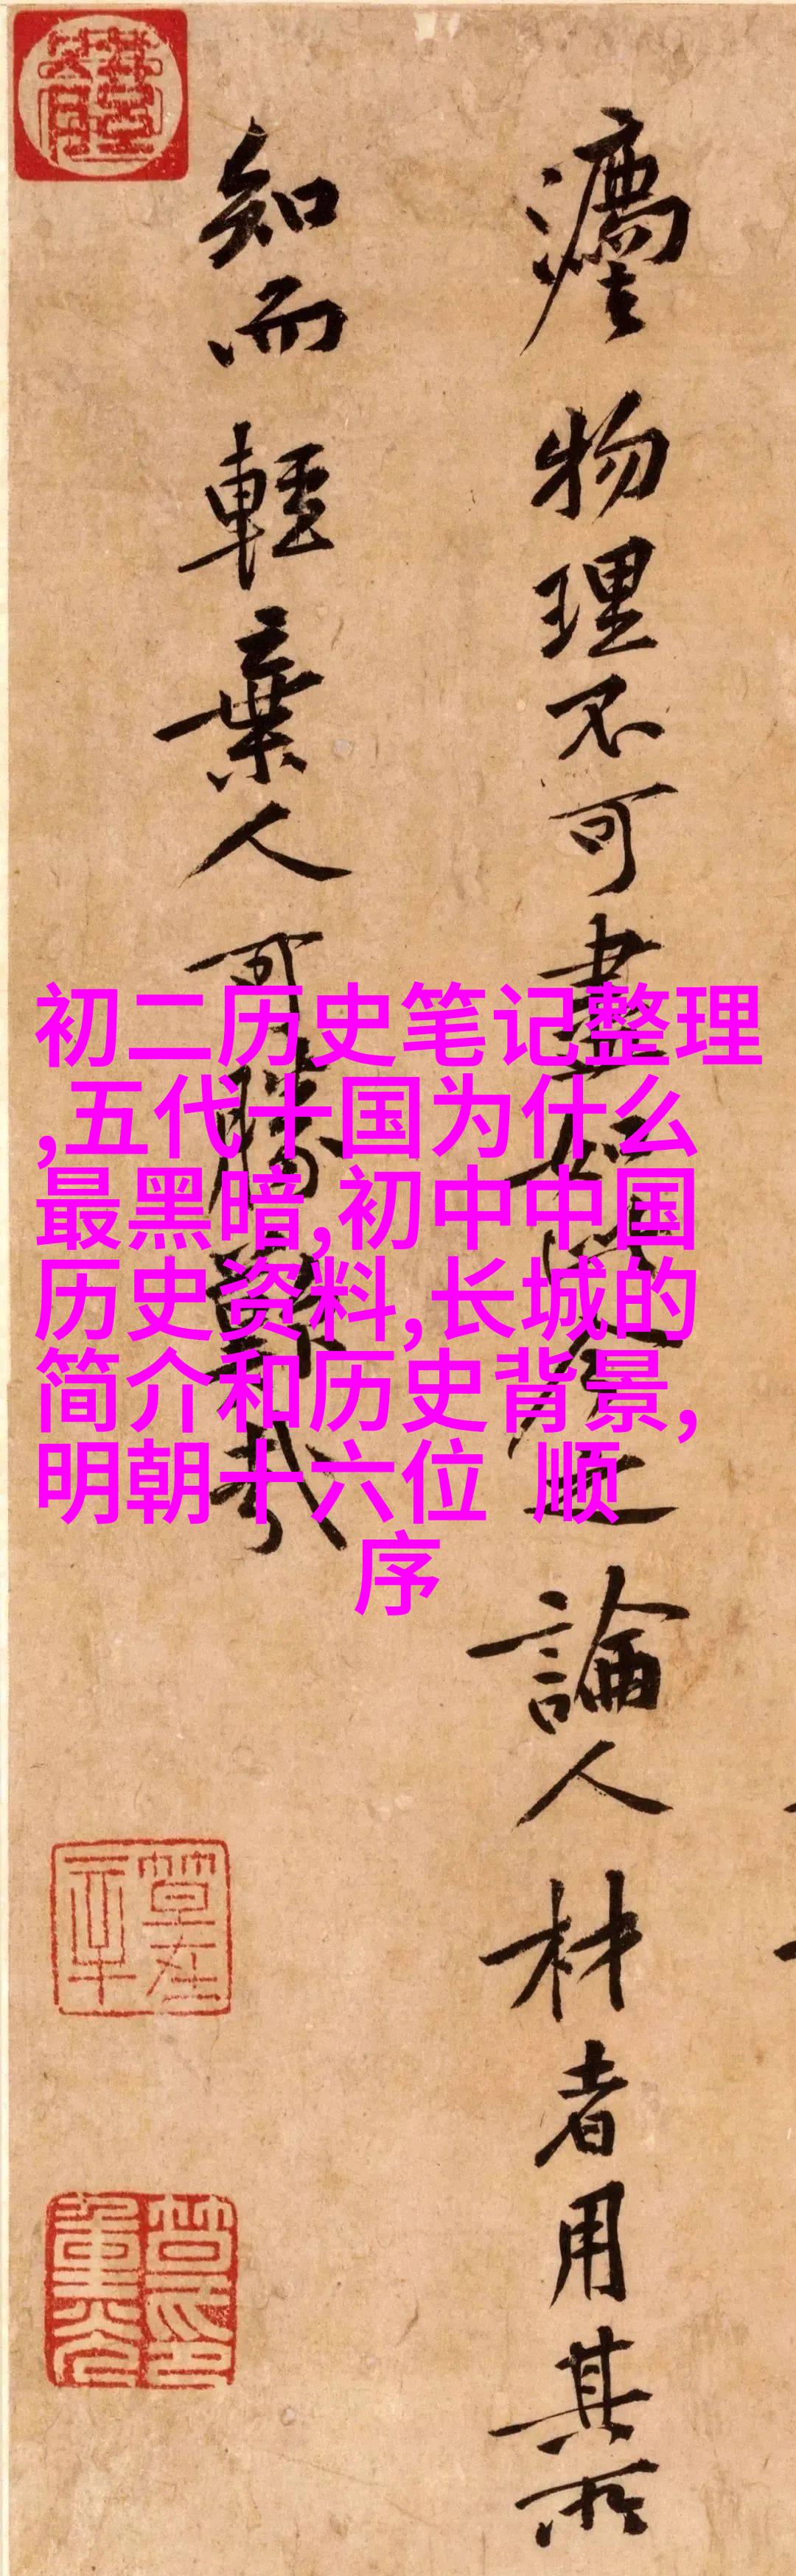 鷹物理不可盡如此今之論人材者用其所
知而輕棄人可勝歎哉
初二历史笔记整理
,五代十国为什么
最黑暗,初中中国
历史资料,长城的
简介和历史背景,
明朝十六位 顺
序